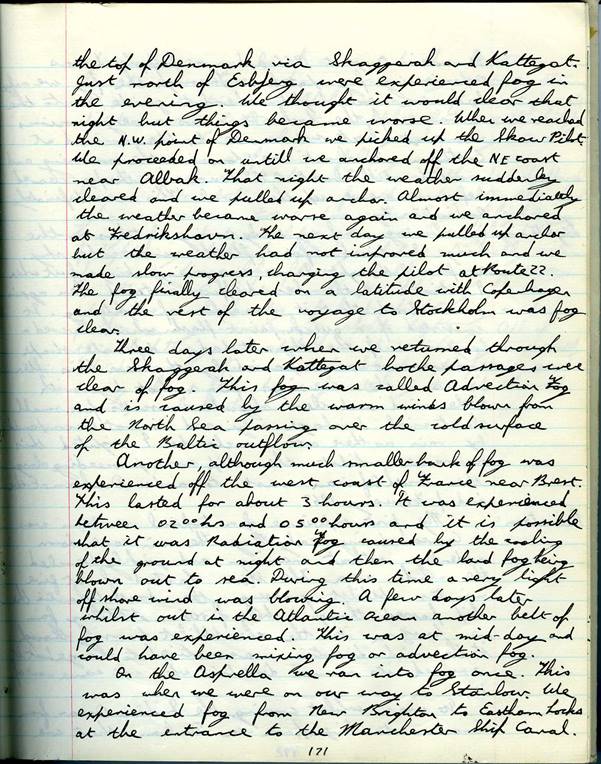 the top of Denmark via Skaggerah and Kattegat.
Just north of Esbjerg were experienced fog in
the evening. We thought it would clear that
night but things became worse. When we reached
the N.W. point of Denmark we picked up the Skaw Pilot.
We proceeded on untill we anchored off the NE coast
near Albak. That night the weather suddenley
cleared and we pulled up anchor. Almost immediately
the weather became worse again and we anchored
at Fredrikshavn. The next day we pulled up anchor
but the weather had not improved much and we
made slow progress, changing the pilot at Route 22.
The fog finally cleared on a latitude with Copenhagen
and the rest of the voyage to Stockholm was fog
clear.
Three days later when we returned through
the Skaggerah and Kattegat bothe passages were
clear of fog. This fog was called Advection Fog
and is caused by the warm winds blown from
the North Sea passing over the cold surface
of the Baltic outflow.
Another, although much smaller bank of fog was
experienced off the west coast of France near Brest.
This lasted for about 3 hours. It was experienced
between 0200 hrs and 0500 hours and it is possible
that it was Radiation Fog caused by the cooling
of the ground at night and then the land fog being
blown out to sea. During this time a very light
off shore wind was blowing. A few days later
whilst out in the Atlantic ocean another belt of
fog was experienced. This was at mid-day and
could have been mixing fog or advection fog.
On the Asprella we ran into fog once. This
was when we were on our way to Stanlow. We
experienced fog from New Brighton to Eastham Locks
at the entrance to the Manchester Ship Canal.
171